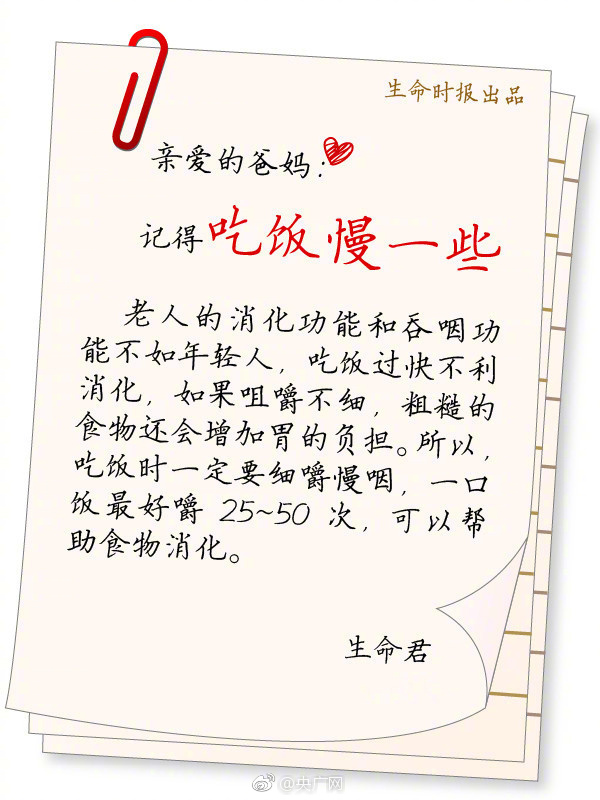 生命时报出品
亲爱的爸妈：
记得吃饭慢一些
老人的消化功能和吞咽功
能不如年轻人，吃饭过快不利
消化，如果咀嚼不细，粗糙的
食物还会增加胃的负担。所以，
吃饭时一定要细嚼慢咽，一口
饭最好嚼 25~50 次，可以帮
助食物消化。
生命君
@央广网